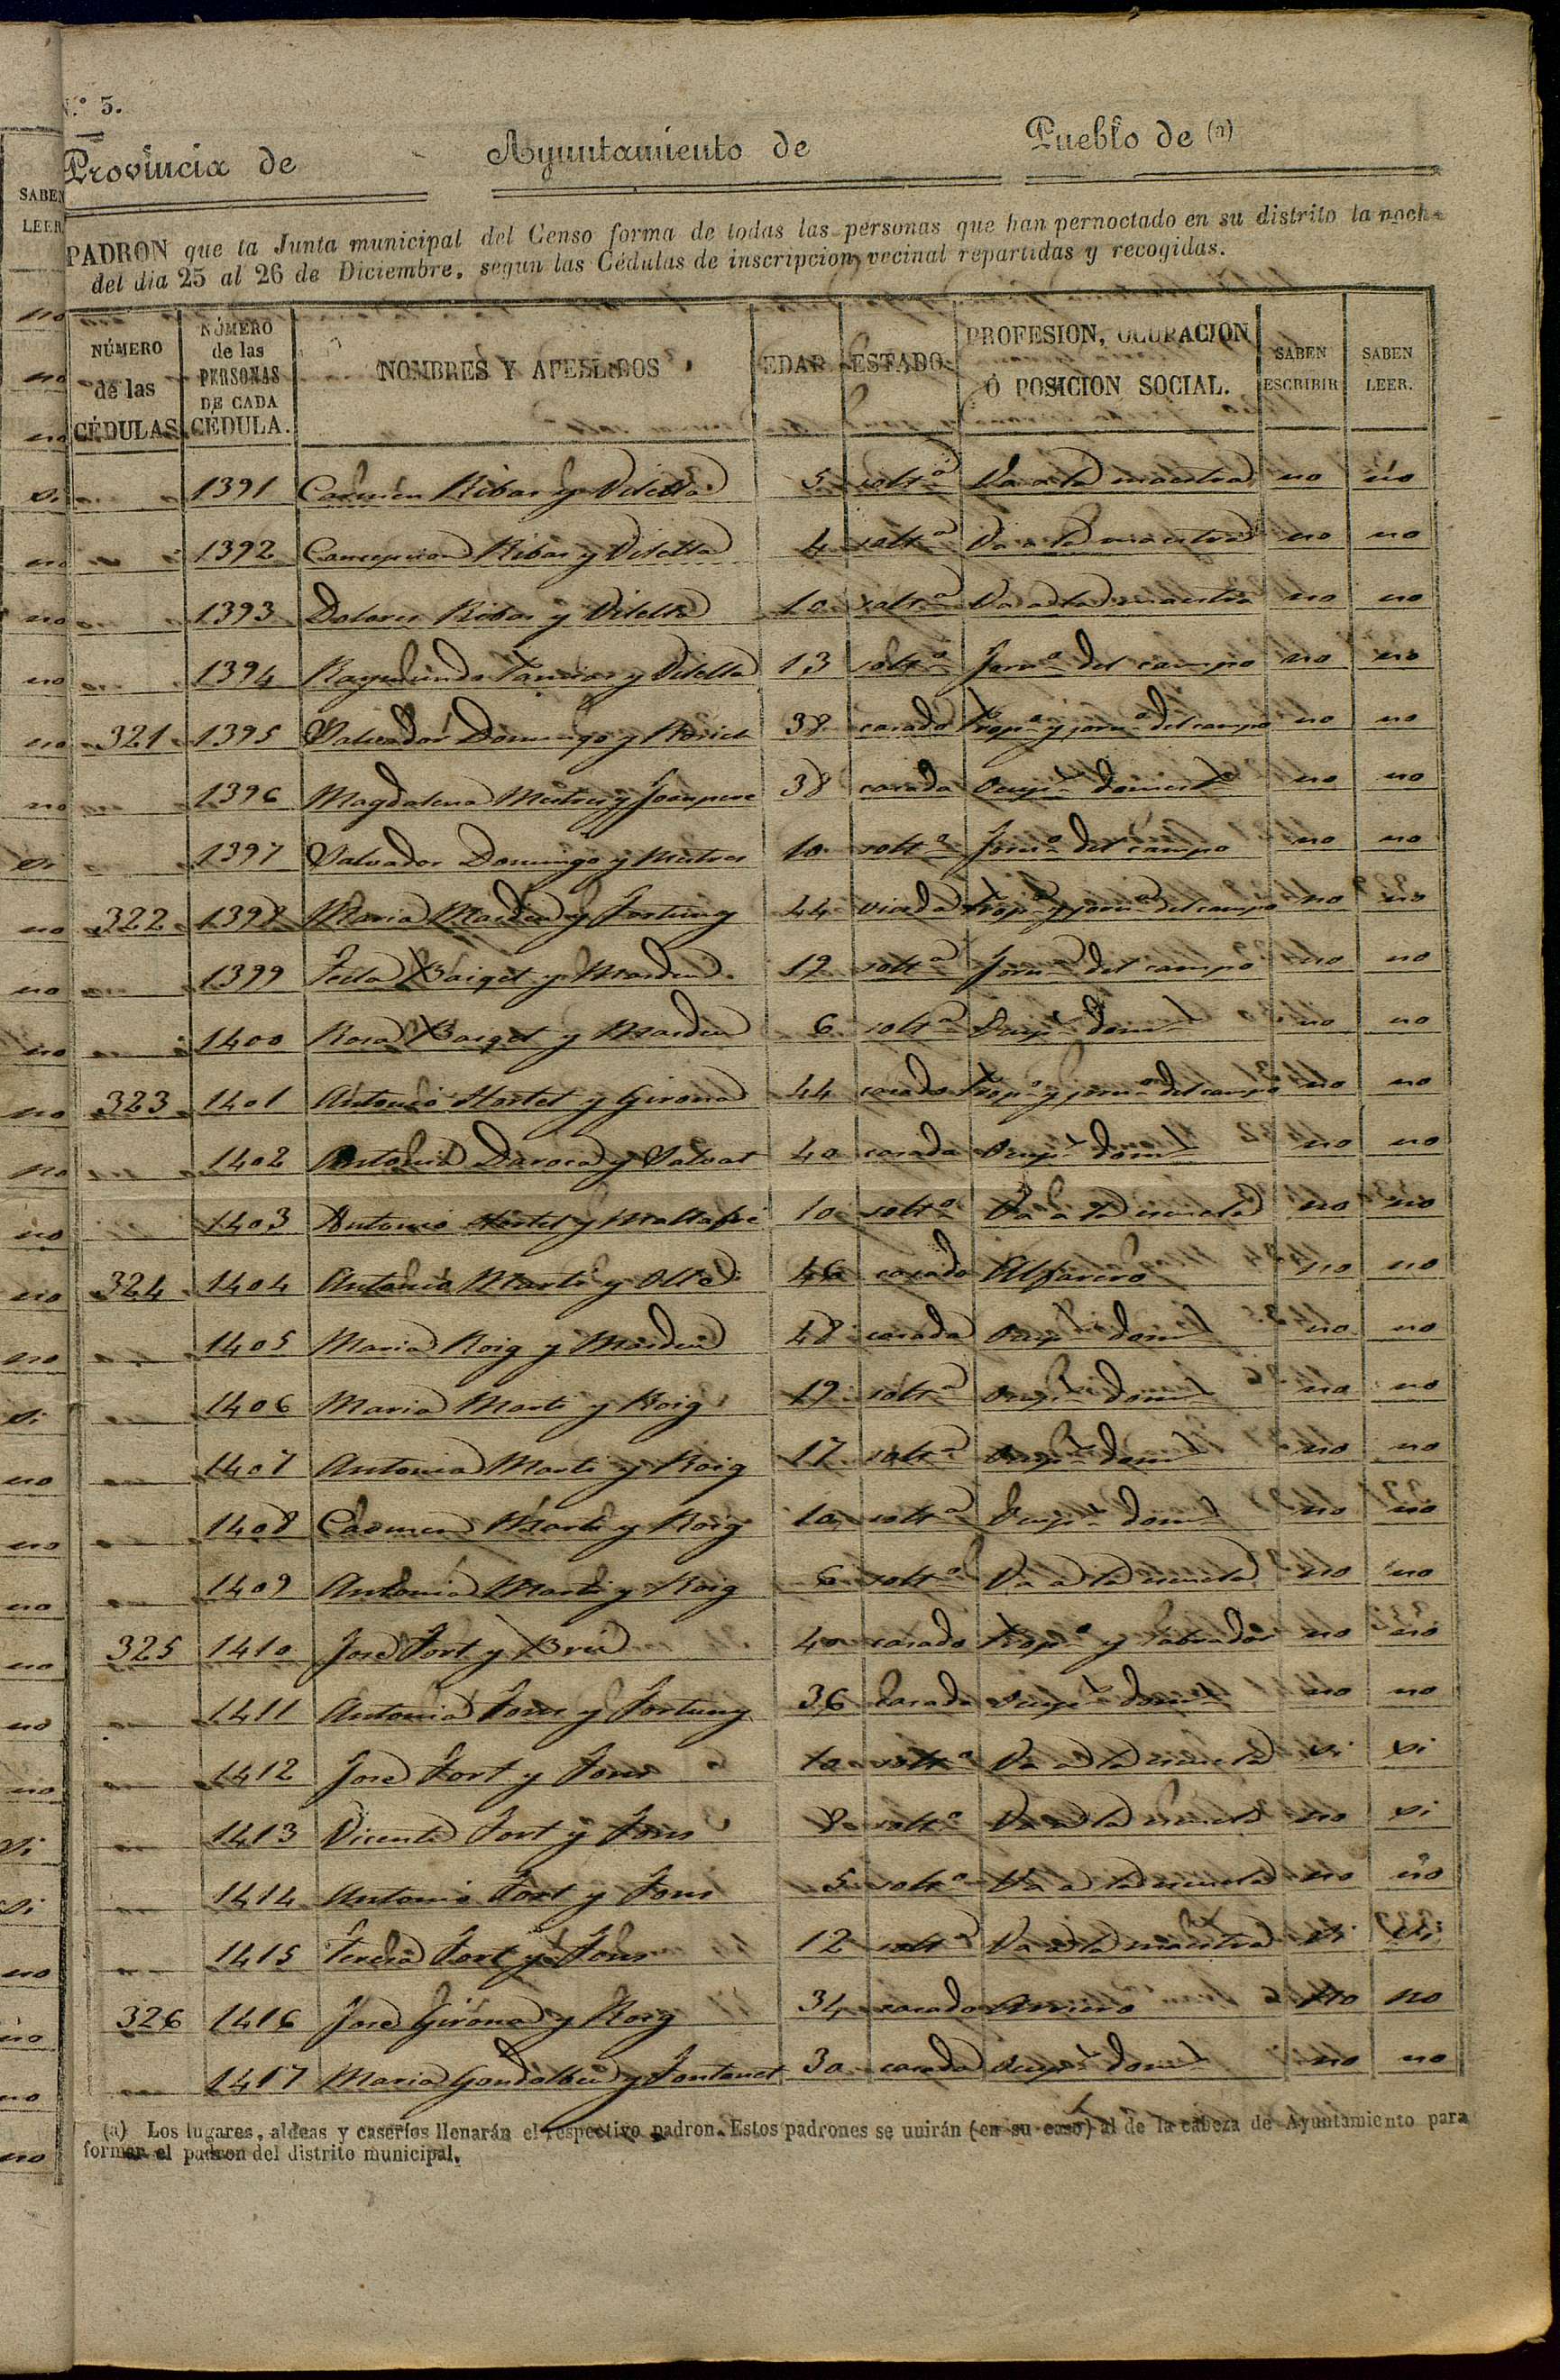 N.º 5.
Provincia de Ayuntamiento de Pueblo de (a)
PADRON que la Junta municipal del Censo forma de todas las personas que han pernoctado en su distrito la noche
del dia 25 al 26 de Diciembre, segun las Cédulas de inscripcion vecinal repartidas y recogidas.
NÚMERO de las CÉDULAS NÚMERO de las PERSONAS DE CADA CÉDULA. NOMBRES Y APELLIDOS EDAD ESTADO PROFESION, OCUPACION Ó POSICION SOCIAL. SABEN ESCRIBIR SABEN LEER.
1391 Carmen Ribas y Vilella 5 solt.a Va a la maestra no no
1392 Concepcion Ribas y Vilella 4 solt.a Va a la maestra no no
1393 Dolores Ribas y Vilella 10 solt.a Va a la maestra no no
1394 Raymundo y Vilella 13 solt.o Jorn.o del campo no no
321 1395 Salvador Domingo y 38 casado Prop.o y jorn.o del campo no no
1396 Magdalena Mestres y Jounpere 38 casada Ocup.n domest.a no no
1397 Salvador Domingo y Mestres 10 solt.o Jorn.o del campo no no
322 1398 Maria Mardeu y Fortuny 44 viuda Prop.a y jorn.a del campo no no
1399 Tecla Baiget y Mardeu 19 solt.a Jorn.a del campo no no
1400 Rosa Baiget y Mardeu 6 solt.a Ocup.n dom.a no no
323 1401 Antonio Hortet y Girona 44 casado Prop.o y jorn.o del campo no no
1402 Antonia Daroca y Salvat 40 casada Ocup.n dom.a no no
1403 Antonio Hortet y Mallafré 10 solt.o Va a la escuela no no
324 1404 Antonio Marti y Ollé 46 casado Alfarero no no
1405 Maria Roig y Mardeu 48 casada Ocup.n dom.a no no
1406 Maria Marti y Roig 19 solt.a Ocup.n dom.a no no
1407 Antonia Marti y Roig 17 solt.a Ocup.n dom.a no no
1408 Carmen Marti y Roig 10 solt.a Ocup.n dom.a no no
1409 Antonio Marti y Roig 6 solt.o Va a la escuela no no
325 1410 José Fort y Breu 40 casado Prop.o y labrador no no
1411 Antonia Fons y Fortuny 36 casada Ocup.n dom.a no no
1412 José Fort y Fons 10 solt.o Va a la escuela si si
1413 Vicente Fort y Fons 8 solt.o Va a la escuela no si
1414 Antonio Fort y Fons 5 solt.o Va a la escuela no no
1415 Teresa Fort y Fons 12 solt.a Va a la maestra si si
326 1416 José Girona y Roig 34 casado Arriero no no
1417 Maria Gondolbeu y Fontanet 30 casada Ocup.n dom.a no no
(a) Los lugares, aldeas y caseríos llenarán el respectivo padron. Estos padrones se unirán (en su caso) al de la cabeza de Ayuntamiento para
formar el padron del distrito municipal.